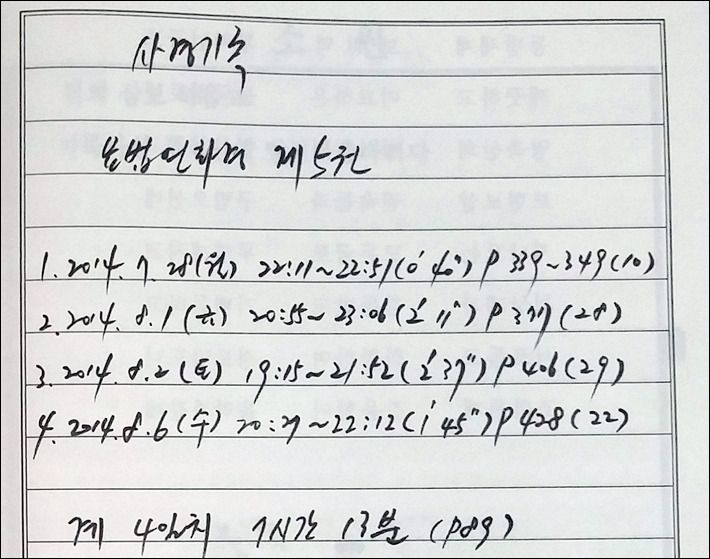 사경기록
묘법연화경 제5권
1. 2014. 7. 28(월) 22:11~22:51(0' 40") P 339~349(10)
2. 2014. 8. 1(금) 20:55~23:06(2' 11") P 377(28)
3. 2014. 8. 2(토) 19:15~21:52(2' 37") P 406(29)
4. 2014. 8. 6(수) 20:27~22:12(1' 45") P 428(22)
계 4일차 7시간 13분 (P89)